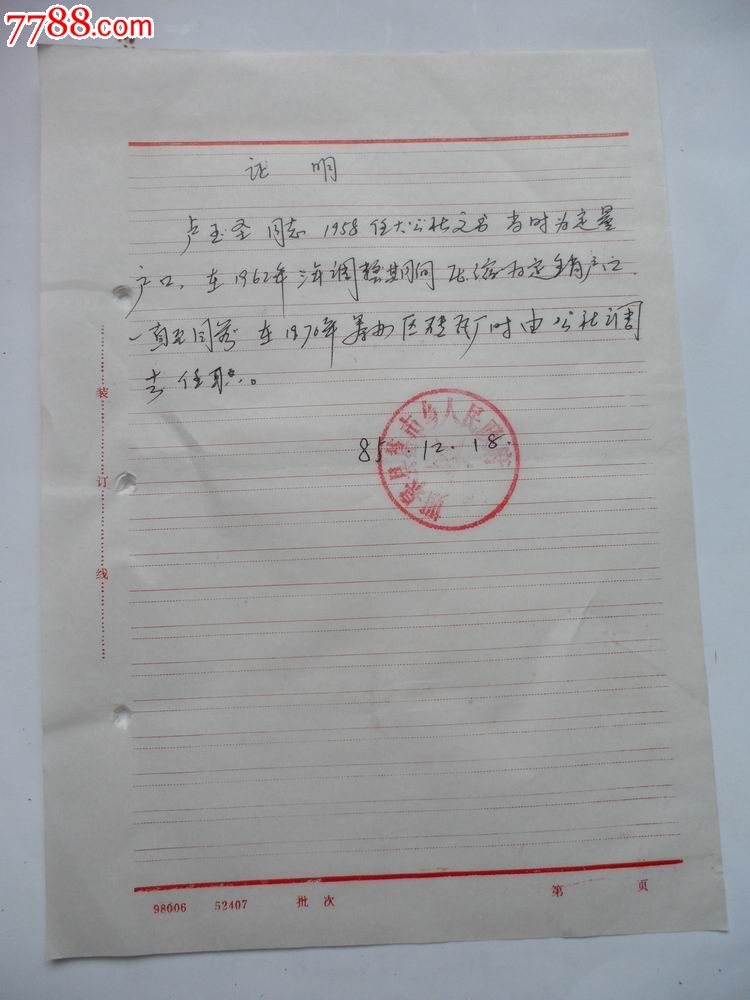 7788.com
证 明
卢玉圣同志 1958 任大公社文书 当时为定量
户口，在1962年 调整期间 压缩为定销户口.
一直 在1970年 区 厂时由公社调
去任职。
85.12.18.
市乡人民政府
装
订
线
98006 52407 批 次 第 页